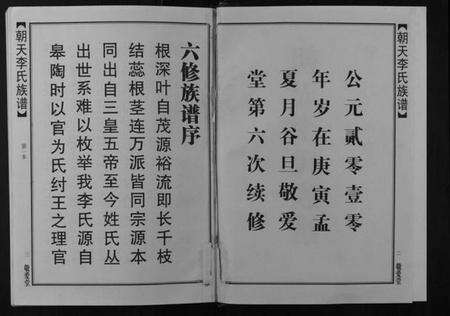 【朝天李氏族谱】
公元贰零壹零
年岁在庚寅孟
夏月谷旦敬爱
堂第六次续修
二
敬爱堂
六修族谱序
根深叶自茂源裕流即长千枝
结蕊根茎连万派皆同宗源本
同出自三皇五帝至今姓氏丛
出世系难以枚举我李氏源自
皋陶时以官为氏纣王之理官
【朝天李氏族谱】
三
敬爱堂